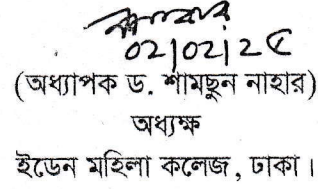 02/02/2৫
(অধ্যাপক ড. শামছুন নাহার)
অধ্যক্ষ
ইডেন মহিলা কলেজ, ঢাকা।